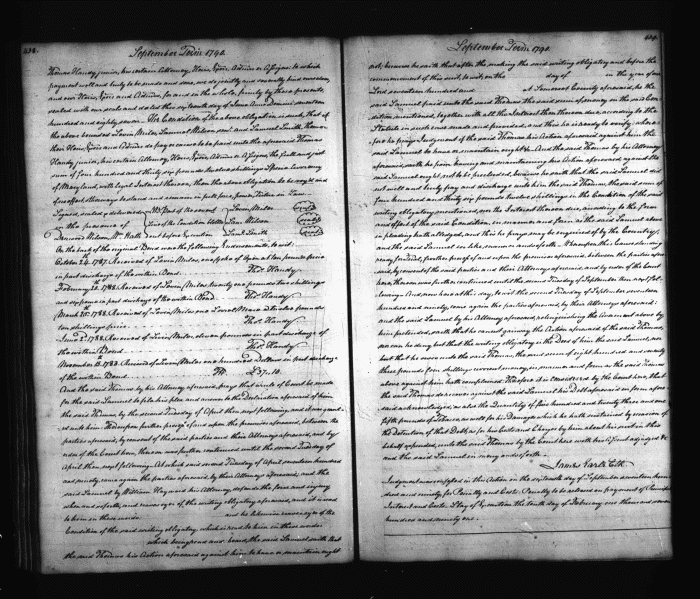 438.
September Term 1790.
Thomas Handy, junior, his certain Attorney, Heirs, Exõrs, Admõrs or Assigns. to which
payment well and truly to be made and done, we do jointly and severally bind ourselves,
and our Heirs, Exõrs and Admõrs for and in the whole, firmly by these presents
sealed with our seals and dated this sixteenth day of June Anno Domini seventeen
hundred and eighty seven. The Condition of the above obligation is such, that if
the above bounden Levin Miles, Samuel Wilson and Samuel Smith, them
their Heirs, Exõrs and Admõrs do pay or cause to be paid unto the aforesaid Thomas
Handy, junior, his certain Attorney, Heirs, Exõrs, Admõrs or Assigns, the full and just
sum of four hundred and thirty six pounds twelve shillings Specie currency
of Maryland, with legal Interest thereon, then the above obligation to be void and
of no effect otherwise to stand and remain in full force, power, Virtue in Law.
Signed, sealed & delivered Levin Miles (seal)
in the presence of line of the Condition Levin Wilson (seal)
Denwood Wilson, Wm. before Execution Saml. Smith (seal)
On the back of the original Bond was the following Indorsements, to wit:
October 24th. 1787. Received of Levin Miles, one of at ten pounds specie
in part discharge of the within Bond. Thos. Handy.
February 12th. 1788. Received of Levin Miles twenty one pounds two shillings
and six pence in part discharge of the within Bond Thos. Handy
March 21st. 1788. Received of Levin Miles one Sorrel Mare at twelve pounds
ten shillings specie Thos. Handy
June 2d. 1788. Received of Levin Miles, eleven pounds in part discharge of
the within Bond Thos. Handy
November 13th. 1788. Received of Levin Miles one hundred Dollars in part discharge
of the within Bond. TH. £37.10.
And the said Thomas by his Attorney aforesaid, prays that a rule of Court be made
for the said Samuel to file his plea and answer to the Declaration aforesaid of him
the said Thomas, by the second Tuesday of April then next following and it was grant-
ed unto him Whereupon further process of and upon the premises aforesaid, between the
parties aforesaid, by consent of the said parties and their Attornies aforesaid, and by
order of the Court here, thereon was further continued until the second Tuesday of
April then next following. At which said second Tuesday of April seventeen hundred
and ninety, came again the parties aforesaid, by their Attornies aforesaid, and the
said Samuel by William Hayward his Attorney, defends the force and injury,
when and so forth, and craves oyer of the writing obligatory aforesaid, and it is read
to him in these words: and he likewise craves oyer of the
Condition of the said writing obligatory, which is read to him in these words
which being read and heard, the said Samuel saith that
the said Thomas his Action aforesaid against him to have or maintain ought
439.
September Term 1790.
not, because he saith that after the making the said writing obligatory and before the
commencement of this suit, to wit, on the day of in the year of our
Lord seventeen hundred and at Somerset County aforesaid, he the
said Samuel paid unto the said Thomas the said sum of money in the said Con-
dition mentioned, together with all the Interest then thereon due, according to the
Statute in such case made and provided, and this he is ready to verify; where-
fore he prays Judgment if the said Thomas his Action aforesaid against him the
said Samuel to have or maintain ought &c. And the said Thomas by his Attorney
aforesaid, saith he from having and maintaining his Action aforesaid against the
said Samuel ought not to be precluded, because he saith that the said Samuel did
not well and truly pay and discharge unto him the said Thomas, the said sum of
four hundred and thirty six pounds twelve shillings in the Condition of the said
writing obligatory mentioned, and the Interest thereon due, according to the form
and effect of the said Condition, in manner and form as the said Samuel above
in pleading hath alledged, and this he prays may be enquired of by the Country;
and the said Samuel in like manner and so forth. Whereupon this Cause standing
ready for Trial, further process of and upon the premises aforesaid, between the parties afore-
said, by consent of the said parties and their Attornies aforesaid, and by order of the Court
here, thereon was further continued until the second Tuesday of September then next fol-
lowing. And now here at this day, to wit, the second Tuesday of September seventeen
hundred and ninety, came again the parties aforesaid, by their Attornies aforesaid:
and the said Samuel by his Attorney aforesaid, relinquishing the Averment above by
him pretended, saith that he cannot gainsay the Action aforesaid of the said Thomas,
nor can he deny but that the writing obligatory is the Deed of him the said Samuel, nor
but that he owes unto the said Thomas, the said sum of eight hundred and seventy
three pounds four shillings current money, in manner and form as the said Thomas
above against him hath complained. Therefore it is considered by the Court here, that
the said Thomas do recover against the said Samuel his Debt aforesaid in form afore-
said acknowledged, as also the Quantity of five hundred and twenty three and one
fifth pounds of Tobacco, as well for his Damages which he hath sustained by occasion of
the Detention of that Debt, as for his Costs and Charges by him about his suit in this
behalf expended, unto the said Thomas by the Court here with his Assent adjudged &c.
and the said Samuel in mercy and so forth.
James Earle Clk.
Judgment was confessed in this Action on the sixteenth day of September seventeen hun-
dred and ninety, for Penalty and Costs. Penalty to be released on payment of Principal
Interest and Costs. Stay of Execution the tenth day of February one thousand seven
hundred and ninety one.